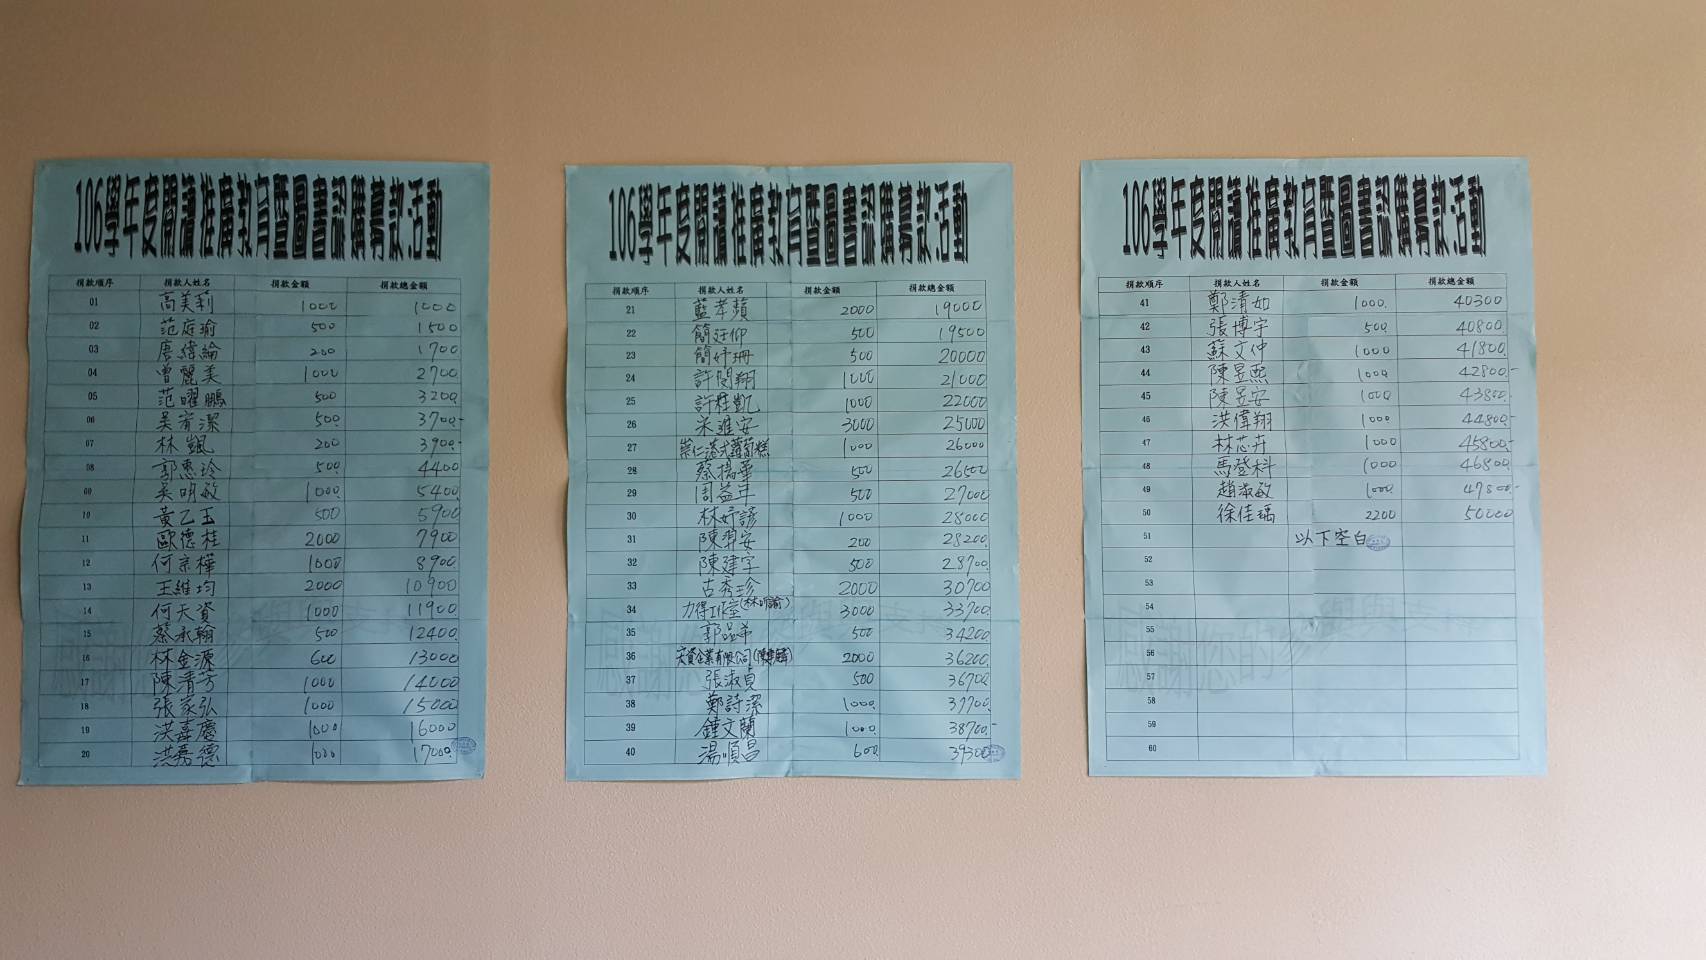 106學年度閱讀推廣教育暨圖書認購募款活動
捐款順序 捐款人姓名 捐款金額 捐款總金額
01 高美莉 1000 1000
02 范庭瑜 500 1500
03 唐緯綸 200 1700
04 曾麗美 1000 2700
05 范曜鵬 500 3200
06 吳宥潔 500 3700-
07 林颽 200 3900-
08 郭惠玲 500 4400
09 吳明敏 1000 5400
10 黃乙玉 500 5900
11 歐德桂 2000 7900
12 何京樺 1000 8900
13 王維均 2000 10900
14 何天資 1000 11900
15 蔡承翰 500 12400
16 林金源 600 13000
17 陳清芳 1000 14000
18 張家弘 1000 15000
19 洪嘉慶 1000 16000
20 洪秀德 1000 17000
106學年度閱讀推廣教育暨圖書認購募款活動
捐款順序 捐款人姓名 捐款金額 捐款總金額
21 藍苹蘋 2000 19000
22 簡廷仰 500 19500
23 簡妤珊 500 20000
24 許閔翔 1000 21000
25 許桂凱 1000 22000
26 宋進安 3000 25000
27 崇仁港式蘿蔔糕 1000 26000
28 蔡揚華 500 26500
29 周益年 500 27000
30 林妤諺 1000 28000
31 陳羿安 200 28200
32 陳建宇 500 28700
33 古秀珍 2000 30700
34 力得工作室 3000 33700
35 郭 500 34200
36 天資企業有限公司 2000 36200
37 張淑貞 500 36700
38 鄭詩潔 1000 37700
39 鐘文蘭 1000 38700-
40 湯順昌 600 39300
106學年度閱讀推廣教育暨圖書認購募款活動
捐款順序 捐款人姓名 捐款金額 捐款總金額
41 鄭清如 1000 40300
42 張博宇 500 40800
43 蘇文仲 1000 41800
44 陳昱熙 1000 42800-
45 陳昱安 1000 43800
46 洪偉翔 1000 44800-
47 林芯卉 1000 45800-
48 馬登科 1000 46800
49 趙淑敏 1000 47800-
50 徐佳瑀 2200 50000
51 以下空白
52
53
54
55
56
57
58
59
60